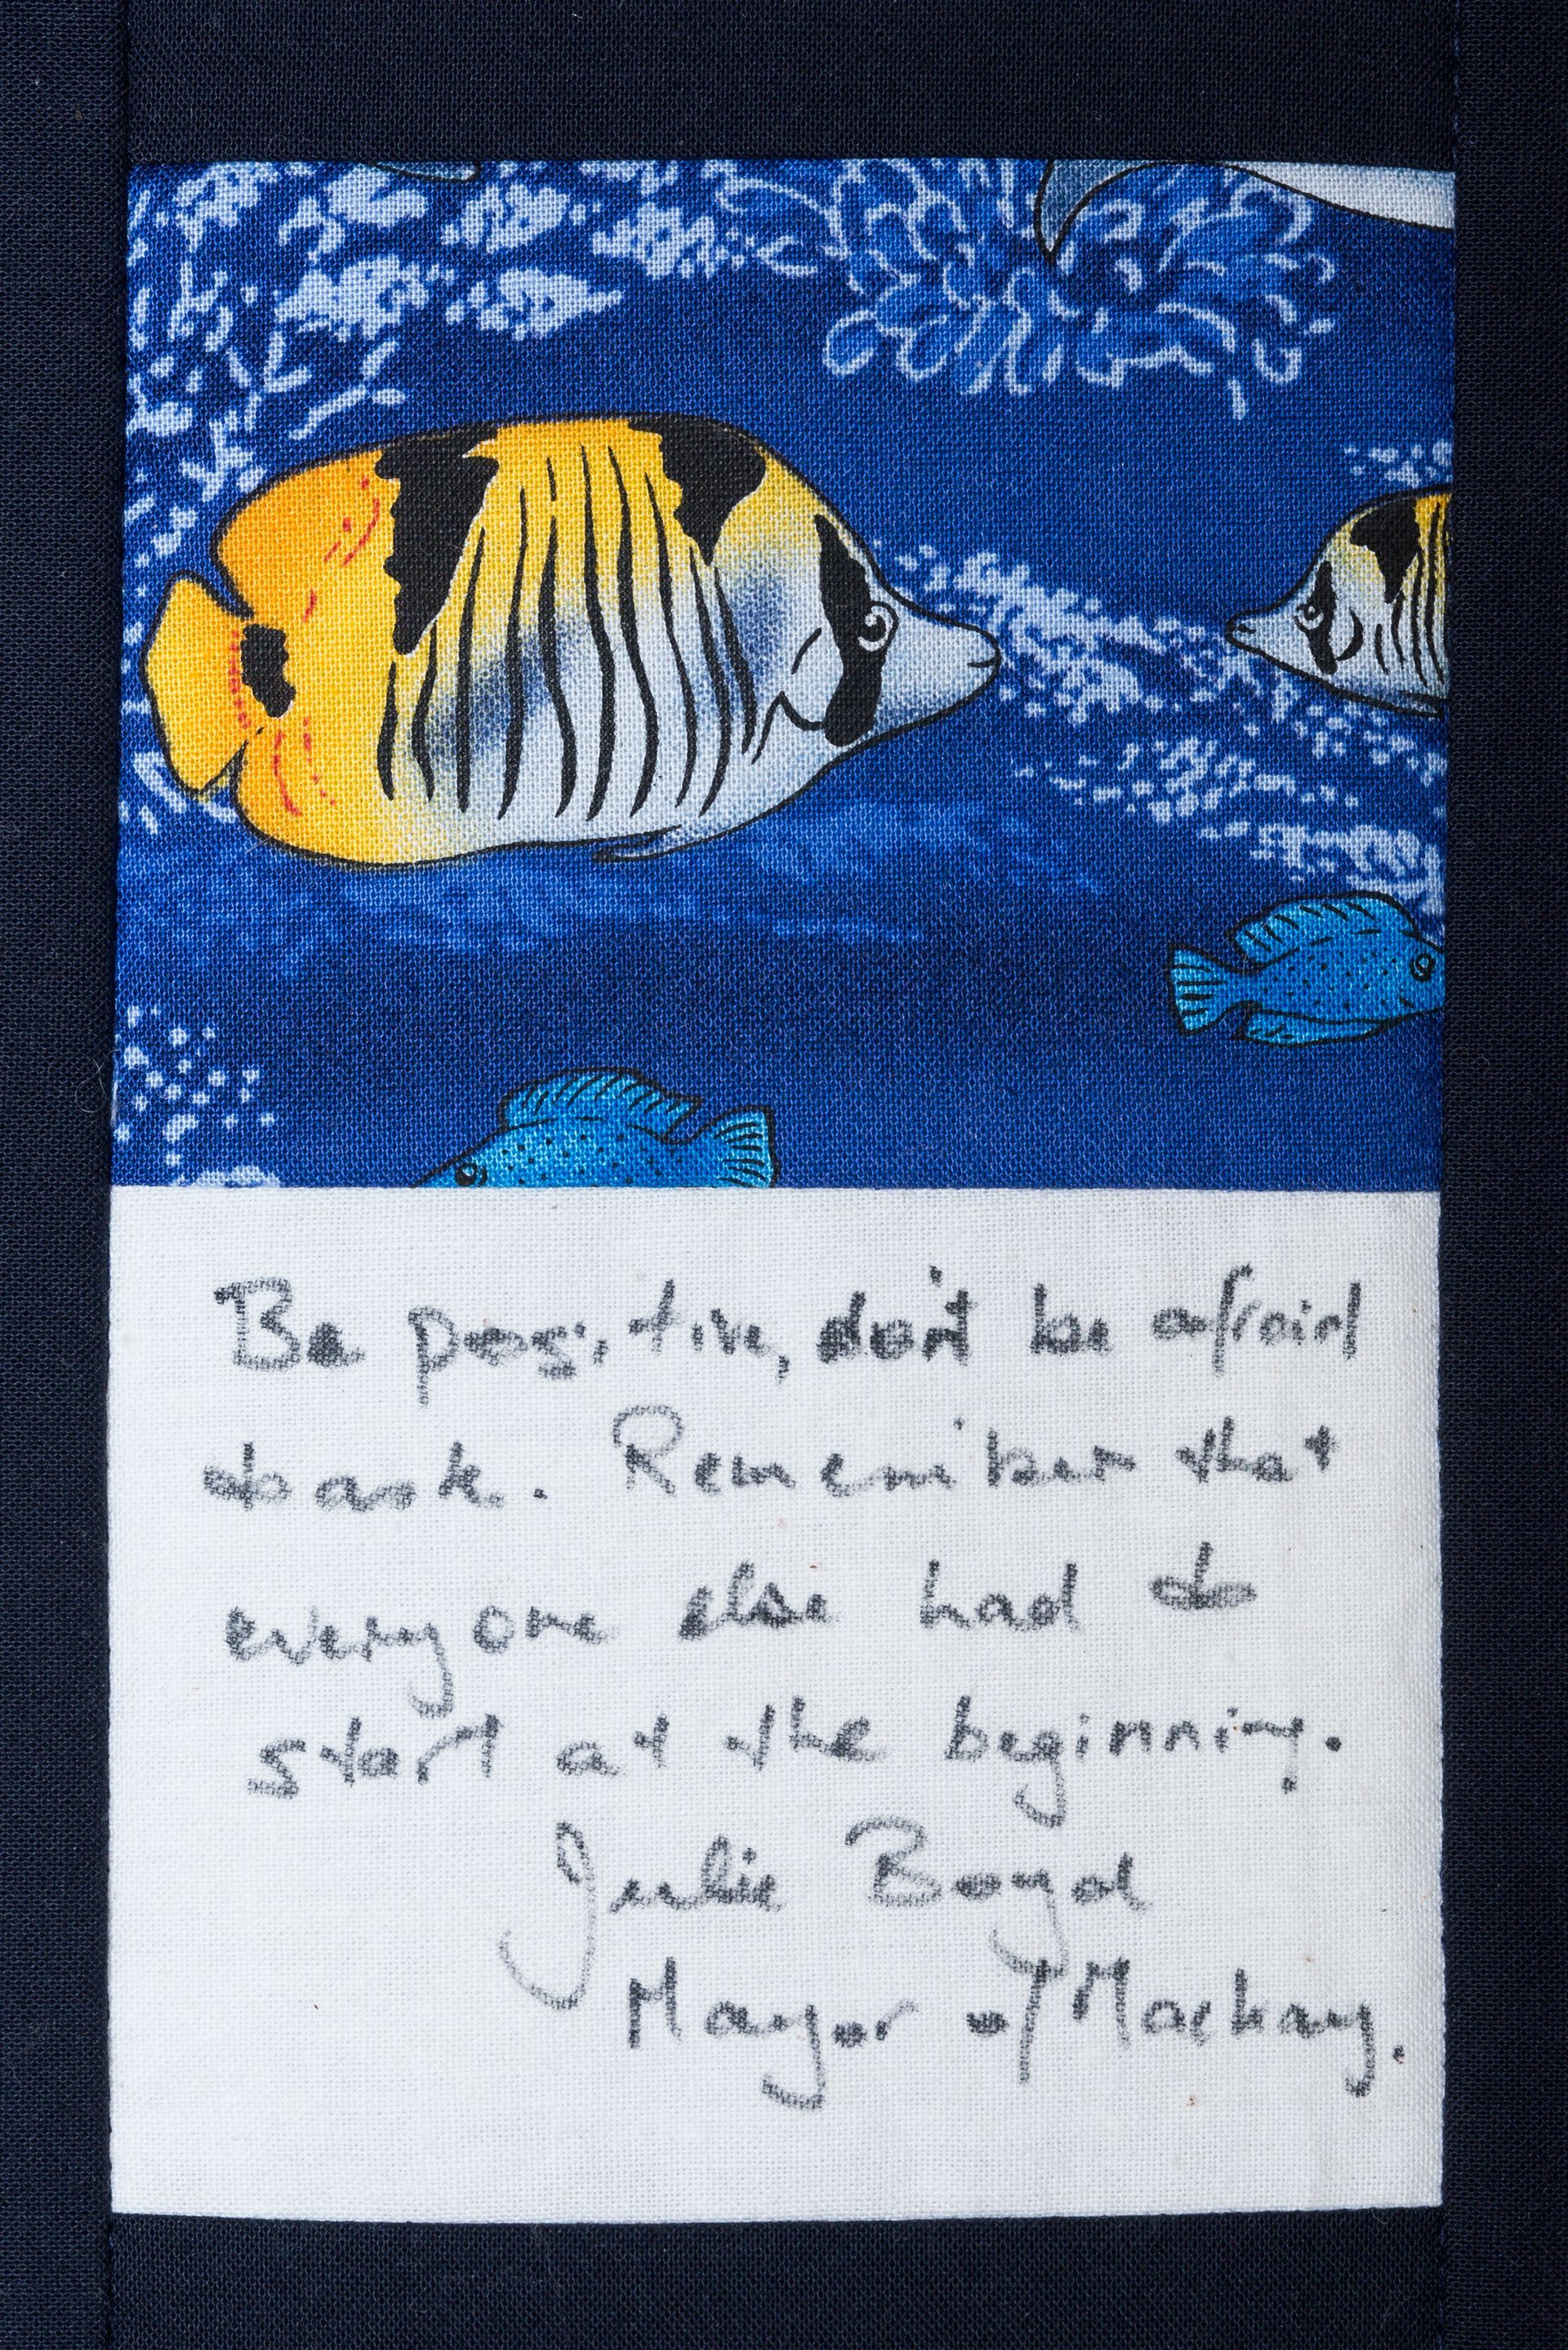 Be positive, don't be afraid
to ask. Remember that
everyone else had to
start at the beginning.
Julie Boyd
Mayor of Mackay.